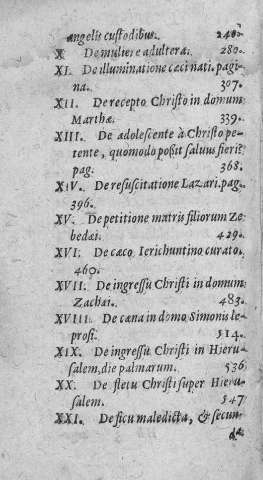 angelis custodibus. 240.
X De muliere adultera. 280.
XI. De illuminatione cæci nati. pagi
na. 307.
XII. De recepto Christo in domum
Marthæ. 339.
XIII. De adolescente à Christo pe-
tente, quomodo poßit saluus fieri?
pag. 368.
XIV. De resuscitatione Lazari. pag.
396.
XV. De petitione matris filiorum Ze
bedæi. 429.
XVI. De cæco Ierichuntino curato.
460.
XVII. De ingressu Christi in domum
Zachæi. 483.
XVIII. De cæna in domo Simonis le
prosi. 514.
XIX. De ingressu Christi in Hieru-
salem, die palmarum. 536
XX. De fletu Christi super Hieru
salem. 547
XXI. De ficu maledicta, & secun
da